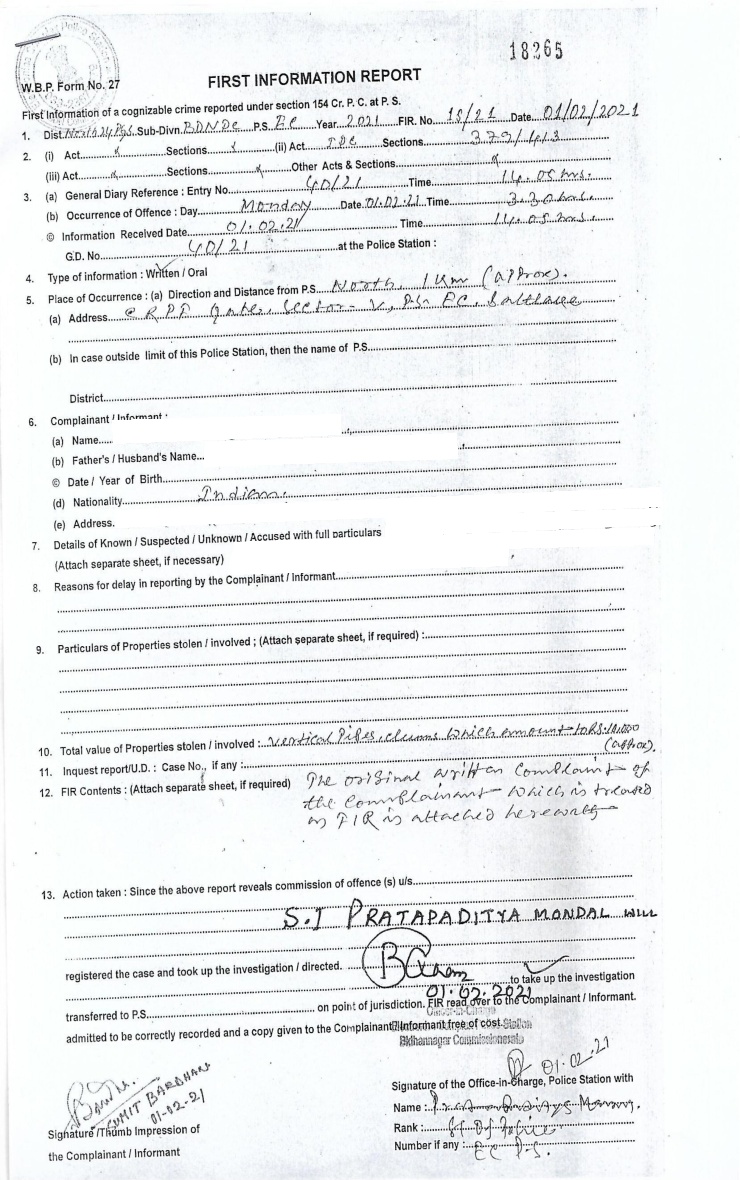 18265
W.B.P. Form No. 27
FIRST INFORMATION REPORT
First Information of a cognizable crime reported under section 154 Cr. P. C. at P. S.
1. Dist. North 24 Pgs. Sub-Divn. BDNDC P.S. EC Year 2021 FIR. No. 15/21 Date 01/02/2021
2. (i) Act x Sections x (ii) Act IPC Sections 379/413
(iii) Act x Sections x Other Acts & Sections x
3. (a) General Diary Reference : Entry No. 40/21 Time 14.05 hrs.
(b) Occurrence of Offence : Day Monday Date 01.02.21 Time 3.30 hrs.
© Information Received Date 01.02.21 Time 14.05 hrs.
G.D. No. 40/21 at the Police Station :
4. Type of information : Written / Oral
5. Place of Occurrence : (a) Direction and Distance from P.S. North, 1 Km (approx).
(a) Address @ RPF Gate, Sector-V, P.S. EC, Saltlake
(b) In case outside limit of this Police Station, then the name of P.S.
District
6. Complainant / Informant :
(a) Name
(b) Father's / Husband's Name
© Date / Year of Birth
(d) Nationality Indian.
(e) Address.
7. Details of Known / Suspected / Unknown / Accused with full particulars
(Attach separate sheet, if necessary)
8. Reasons for delay in reporting by the Complainant / Informant
9. Particulars of Properties stolen / involved ; (Attach separate sheet, if required) :
10. Total value of Properties stolen / involved : vertical Pipes, which amount to RS. 10,000
(approx).
11. Inquest report/U.D. : Case No., if any :
12. FIR Contents : (Attach separate sheet, if required) The original written complaint of
the complainant which is treated
as FIR is attached herewith
13. Action taken : Since the above report reveals commission of offence (s) u/s
S.I PRATAPADITYA MONDAL WILL
registered the case and took up the investigation / directed. to take up the investigation
01.02.2021
transferred to P.S. on point of jurisdiction. FIR read over to the Complainant / Informant.
Officer-in-Charge
admitted to be correctly recorded and a copy given to the Complainant / Informant free of cost. Station
Bidhannagar Commissionerate
01.02.21
Signature of the Office-in-Charge, Police Station with
SUMIT BARDHAN
01-02-21
Name :
Signature / Thumb Impression of
Rank : SI of Police
the Complainant / Informant
Number if any : EC P.S.